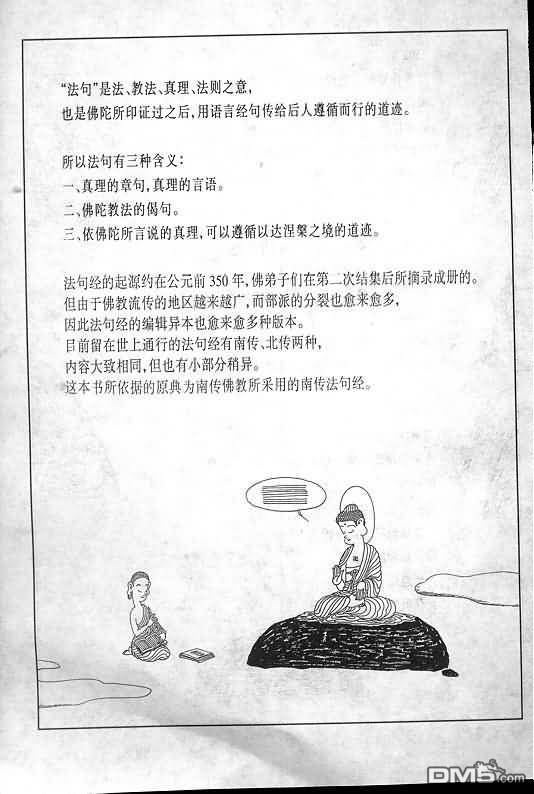 “法句”是法、教法、真理、法则之意,
也是佛陀所印证过之后,用语言经句传给后人遵循而行的道迹。
所以法句有三种含义:
一、真理的章句,真理的言语。
二、佛陀教法的偈句。
三、依佛陀所言说的真理,可以遵循以达涅槃之境的道迹。
法句经的起源约在公元前350年,佛弟子们在第二次结集后所摘录成册的。
但由于佛教流传的地区越来越广,而部派的分裂也愈来愈多,
因此法句经的编辑异本也愈来愈多种版本。
目前留在世上通行的法句经有南传、北传两种,
内容大致相同,但也有小部分稍异。
这本书所依据的原典为南传佛教所采用的南传法句经。
DM5.com